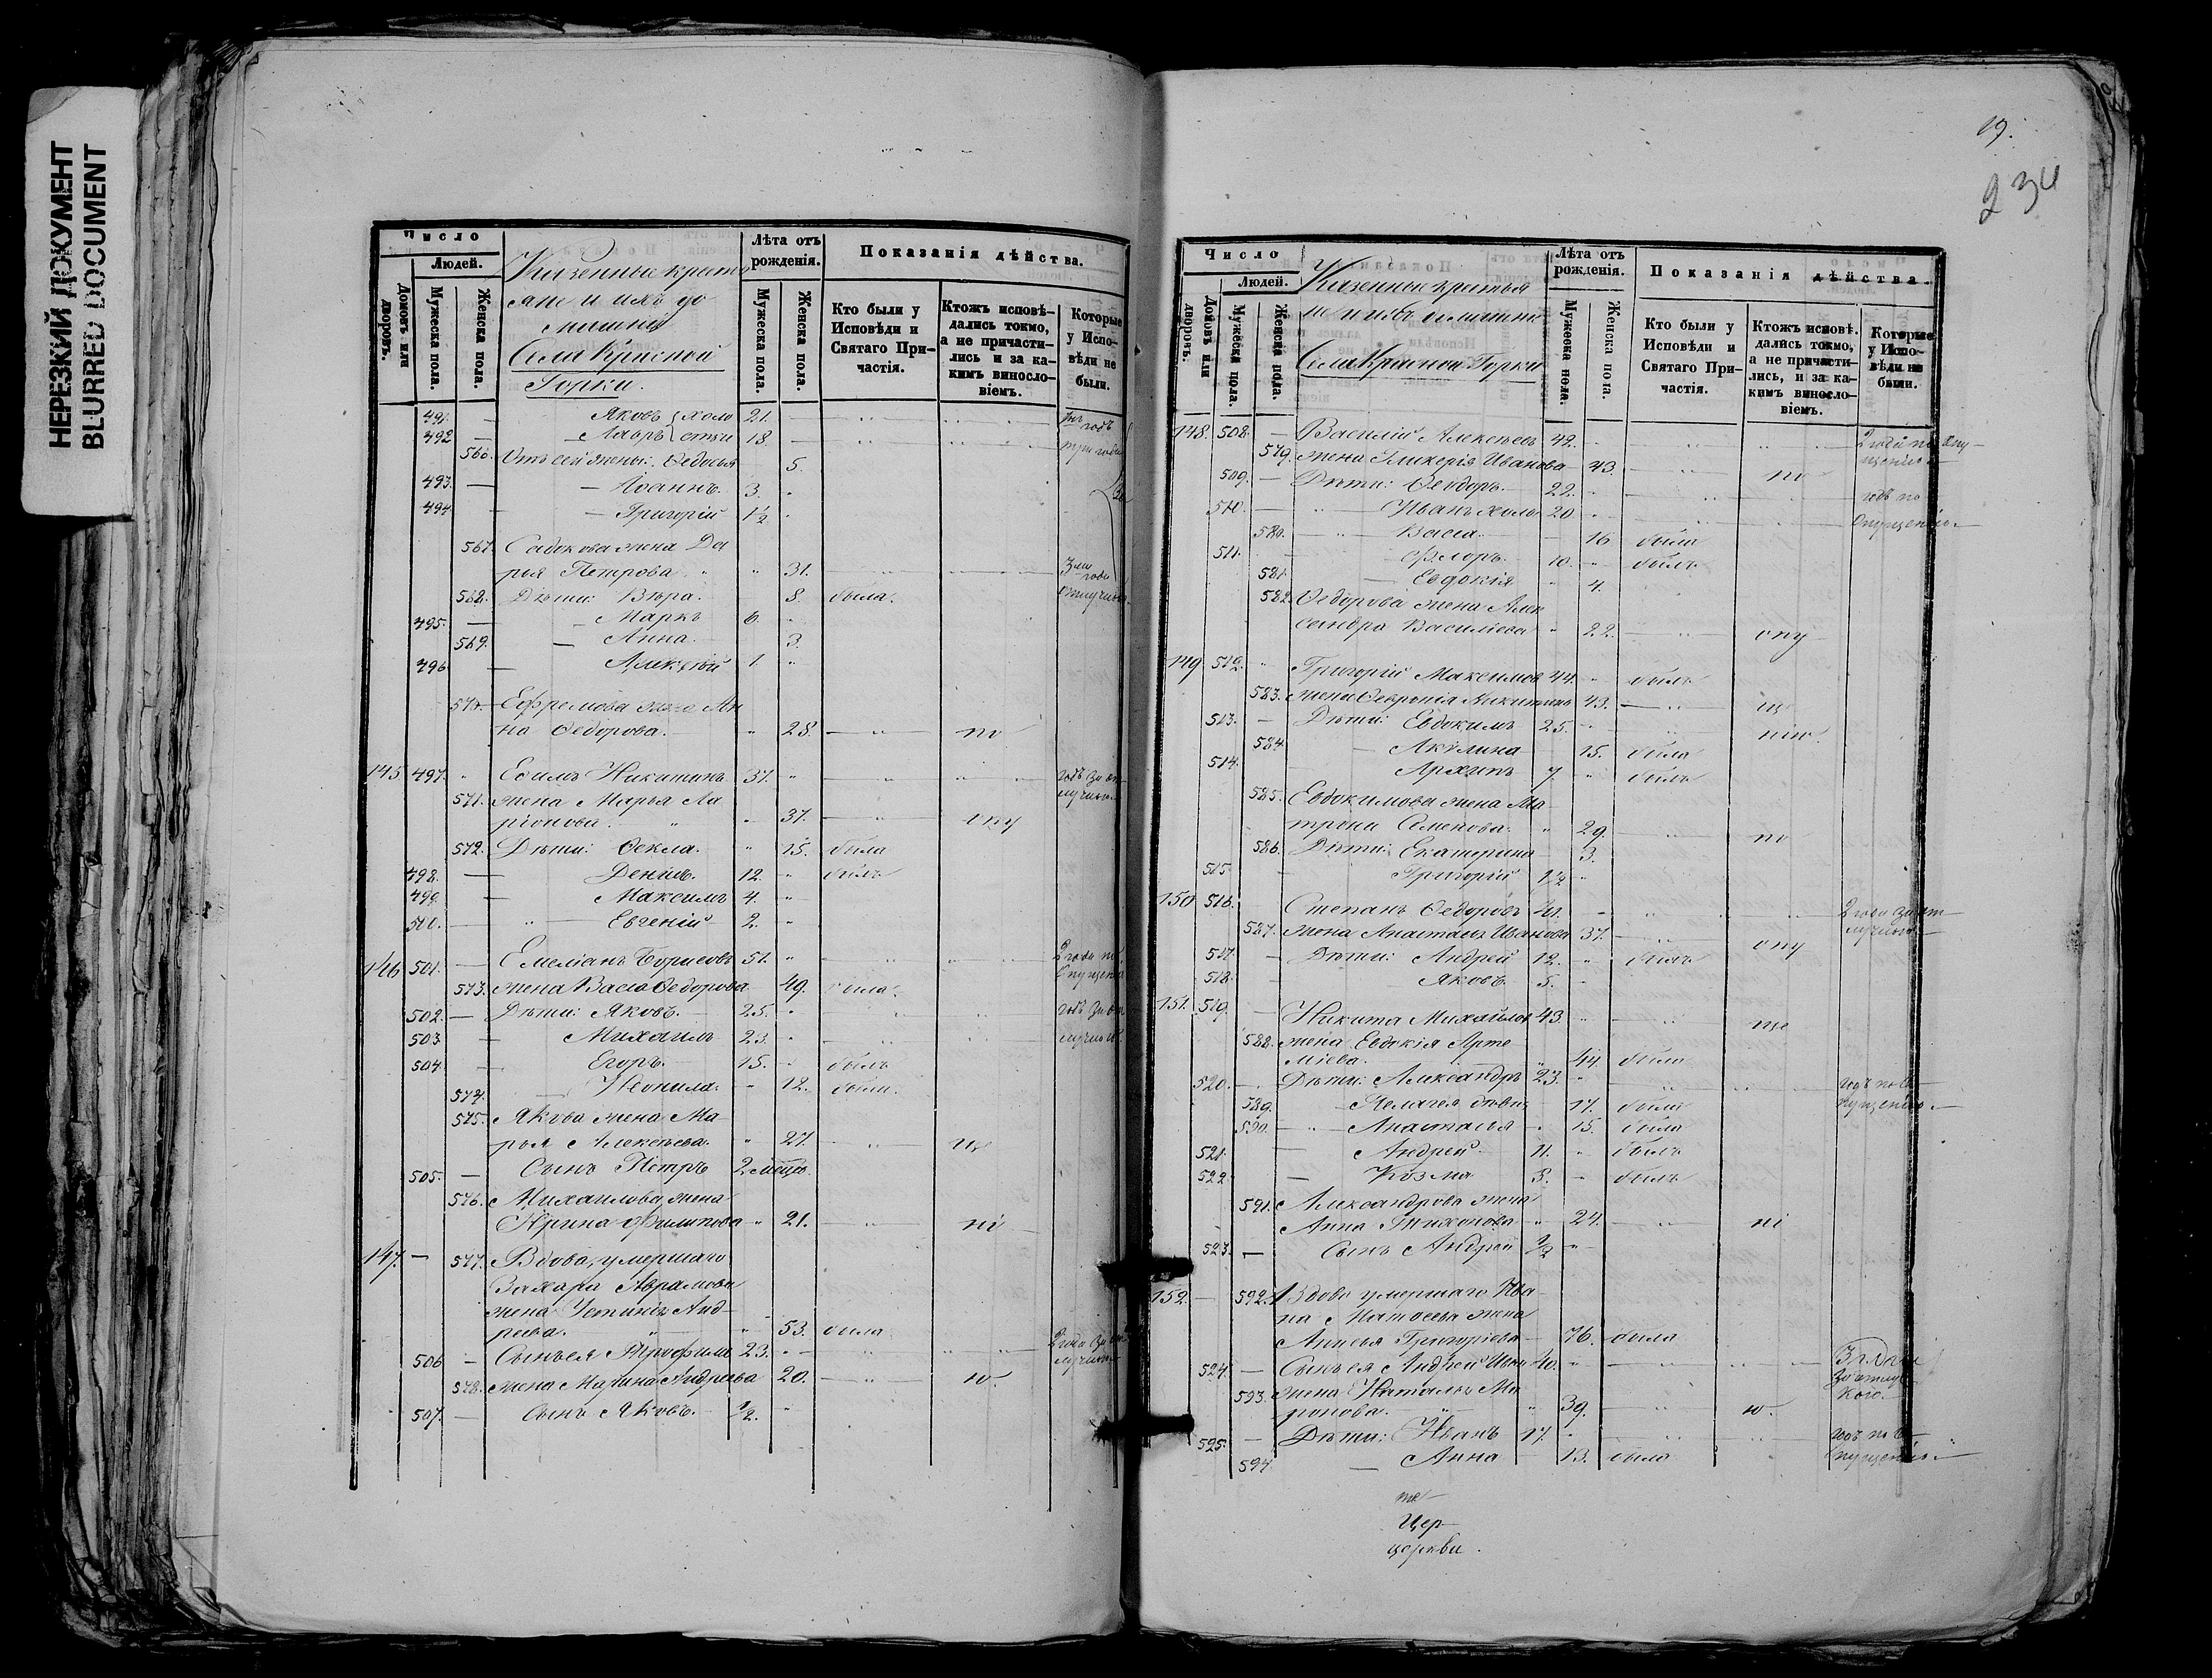 НЕРЕЗКИЙ ДОКУМЕНТ
BLURRED DOCUMENT
Число
Людей.
Домовъ или дворовъ.
Мужеска пола.
Женска пола.
Казенные крестья
не и ихъ до
машніе
Села Красной
Горки.
Лѣта отъ рожденія.
Мужеска пола.
Женска пола.
Показанія дѣйства.
Кто были у Исповѣди и Святаго Причастія.
Ктожъ исповѣдались токмо, а не причастились и за какимъ винословіемъ.
Которые у Исповѣди не были.
491. — Яковъ } холо 21. —
492 — Лавръ } сты 18. —
566. Отъ сей жены: Ѳедосья 5.
493. — Іоаннъ. 3.
494 — Григорій 1½
567. Садокова жена Да
рья Петрова 31.
568. Дѣти: Вѣра. 8. была.
495. — Маркъ 6.
569. — Анна. 3.
496 — Алексѣй 1.
570. Ефремова жена Ан
на Ѳедорова. 28. — по
145 497. Ефимъ Никитинъ 37. годъ за от
лучкою.
571. жена Марья Ла
ріонова. 37. опу
572. Дѣти: Ѳекла. 15. была
498. — Денисъ. 12. былъ
499. — Максимъ 4.
500. — Евгеній 2.
146 501. — Емеліанъ Борисовъ 51. 2 года по
Опущенію
573. жена Васса Ѳедорова 49. была.
502. — Дѣти: Яковъ. 25. годъ за от
503 — Михаилъ 23. лучкой.
504 — Егоръ. 15. былъ
574. — Неонила. 12. была.
575. Якова жена Ма
рья Алексѣева. 27. — ще
505. — Сынъ Петръ 2 мѣсяц.
576. Михаилова жена
Ирина Филипова 21. — ні
147. — 577. Вдова, умершаго
Захара Аврамова
жена Устинія Анд
реева. 53. была
506 — Сынъ ея Трофимъ 23. 2 года за от
лучкою
578. жена Марина Андреева 20. — ю.
507. — Сынъ Яковъ. ½.
19.
234
Число
Людей.
Домовъ или дворовъ.
Мужеска пола.
Женска пола.
Казенные крестья
не и ихъ домашні
Села Красной Горки
Лѣта отъ рожденія.
Мужеска пола.
Женска пола.
Показанія дѣйства.
Кто были у Исповѣди и Святаго Причастія.
Ктожъ исповѣдались токмо, а не причастились, и за какимъ винословіемъ.
Которые у Исповѣди не были.
148. 508. — Василій Алексѣевъ 42. 2 года по Опу
щенію
579. жена Гликерія Иванова 43. — по
509. — Дѣти: Ѳеодоръ. 22. годъ по
510. — Иванъ холъ 20 Опущенію.
580. — Васса. 16 была
511. — Флоръ. 10. былъ
581. — Евдокія 4.
582. Ѳедорова жена Алек
сандра Василіева 22. — опу
149 512. Григорій Максимов 44. былъ
583. жена Ѳевронія Никитина 43. — ще
513. — Дѣти: Евдокимъ 25. нію.
584. — Акилина 15. была
514. Архипъ 7. былъ
585. Евдокимова жена Ма
трена Семенова. 29. — по
586. Дѣти: Екатерина 3.
515. — Григорій 1½
150 516. Степанъ Ѳедоровъ 41. 2 года за от
лучкою
587. жена Анастасія Иванова 37. — опу
517. — Дѣти: Андрей 12. былъ
518. Яковъ. 5.
151. 519. — Никита Михайлов 43. — ще
588. жена Евдокія Арте
міева. 44. была
520. — Дѣти: Александръ 23. годъ по О
пущенію.
589. — Пелагея дѣвка 17. была
590. — Анастасія 15. была
521. — Андрей 11. былъ
522. — Козма 8. былъ
591. Александрова жена
Анна Тихонова 24. — ні
523. — Сынъ Андрей ½
152. — 592. Вдова умершаго Ива
на Матвеева жена
Анисья Григоріева 76. была
524. — Сынъ ея Андрей Иван 40. 3 года
за отлуч
кою.
593. жена Наталья Ми
ронова. 39. — ю.
525. — Дѣти: Иванъ 17. годъ по О
пущенію.
594 — Анна 13. была
Цер
церкви.